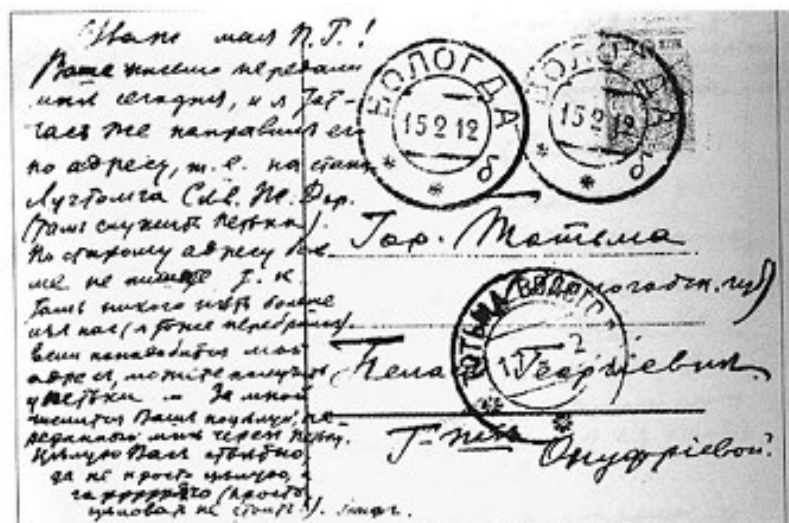 Ваше письмо передали
мнѣ сегодня, и я тот-
часъ же направилъ его
по адресу, т. е. на стан.
Лухтомга Сѣв. Ж. Дор.
(тамъ служитъ Петька).
По старому адресу боль
ше не пишите т. к
тамъ никого нѣтъ болѣе
изъ нас (я тоже перебрался)
если понадобится мой
адрес, можете получить
у Петьки За мной
числится Вашъ поцѣлуй, пе-
реданный мнѣ через Петьку.
Цѣлую Васъ отвѣтно,
да не просто цѣлую, а
горрррячо (просто
целовать не стоитъ!).
ВОЛОГДА
15 2 12
б
ВОЛОГДА
15 2 12
Гор. Тотьма
(Вологодск. губ)
ТОТЬМА ВОЛОГ.
Пелагѣѣ Георгіевнѣ
Г-жѣ
Онуфріевой.